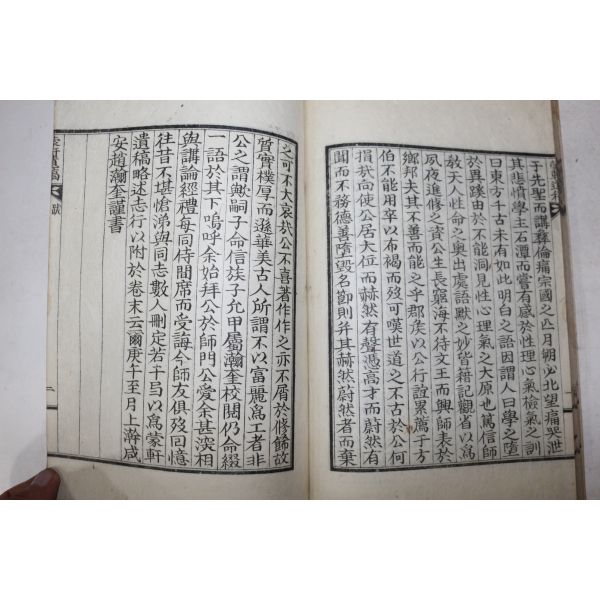 于先聖而講彝倫痛宗國之亡月朔必北望痛哭泄
其悲憤學主石潭而嘗有感於性理心氣檢氣之訓
曰東方千古未有如此明白之語因謂人曰學之墮
於異蹊由於不能洞見性心理氣之大原也篤信師
敎天人性命之奧出處語默之妙皆籍記觀省以爲
夙夜進修之資公生長窮海不待文王而興師表於
鄉邦夫其不善而能之乎郡族以公行誼累薦于方
伯不能用卒以布褐而歿可嘆世道之不古於公何
損哉向使公居大位而赫然有聲憑高才而蔚然有
聞而不務德善墮毀名節則幷其赫然蔚然者而棄
之可不大哀哉公不喜著作作之亦不屑於修餙故
質實樸厚而遜華美古人所謂不以富麗爲工者非
公之謂歟嗣子命信族子允甲屬瀚奎校閱仍命綴
一語於其下嗚呼余始拜公於師門公愛余甚深相
與講論經禮每同侍間席而受誨今師友俱歿回憶
往昔不堪愴涕與同志數人刪定若干号以爲蒙軒
遺稿略述志行以附於卷末云爾庚午至月上澣咸
安趙瀚奎謹書